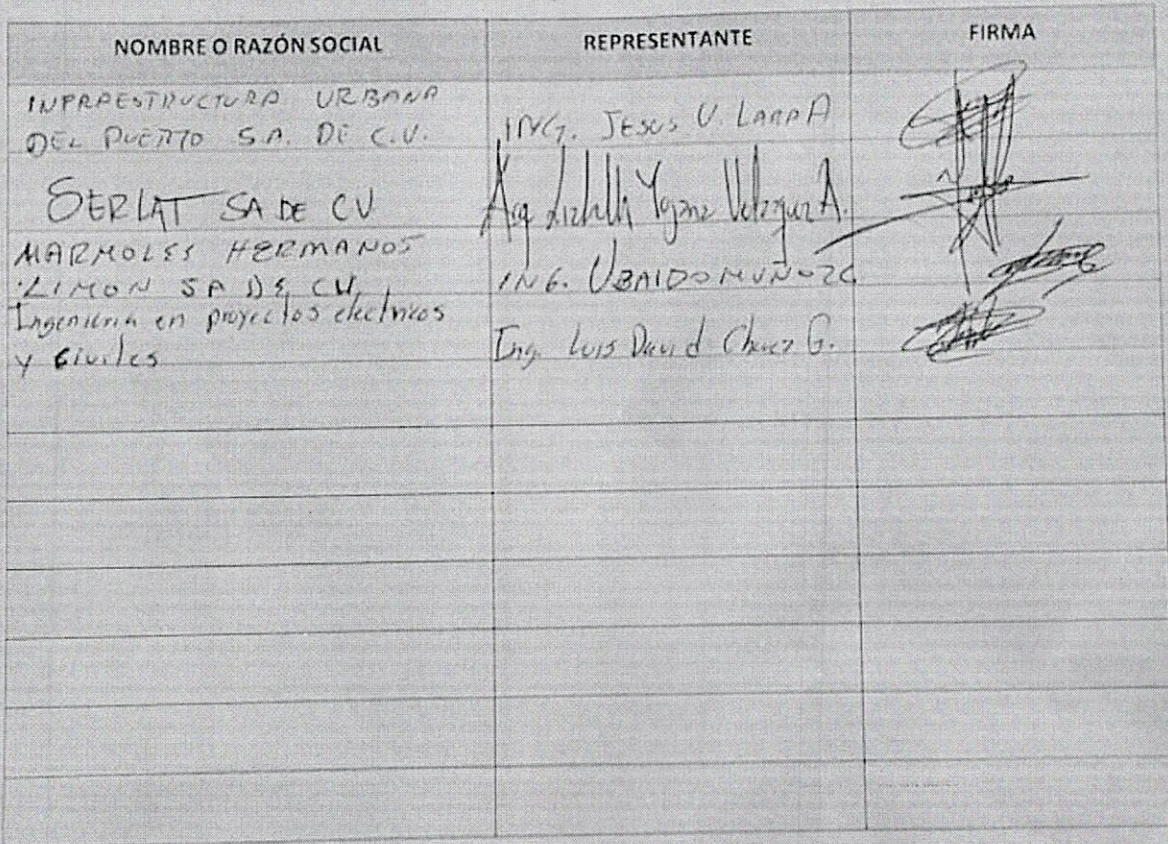 NOMBRE O RAZÓN SOCIAL REPRESENTANTE FIRMA
INFRAESTRUCTURA URBANA
DEL PUERTO S.A. DE C.V. ING. JESUS V. LARA A
SERLAT SA DE CV Arq Lizbeth Velazquez A.
MARMOLES HERMANOS
LIMON SA DE CV ING. UBALDO MUÑOZ C
Ingenieria en proyectos electricos
y civiles Ing. Luis David Chavez G.